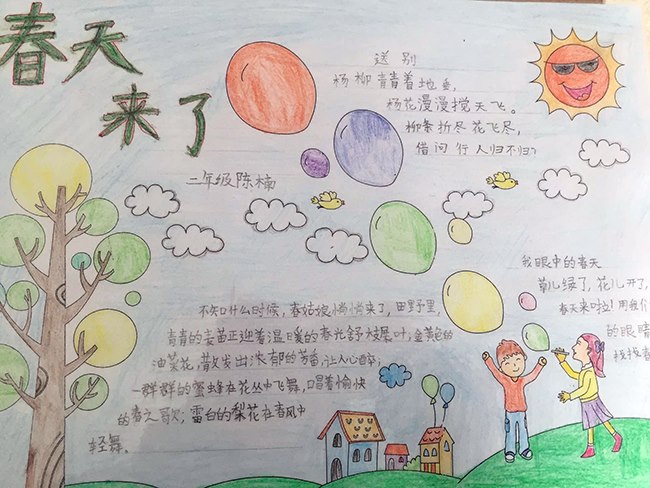 春天
来了
送别
杨柳青青着地垂,
杨花漫漫搅天飞。
柳条折尽花飞尽,
借问行人归不归?
二年级陈楠
不知什么时候,春姑娘悄悄来了,田野里,
青青的麦苗正迎着温暖的春光舒枝展叶;金黄色的
油菜花,散发出浓郁的芳香,让人心醉;
一群群的蜜蜂在花丛中飞舞,唱着愉快
的春之歌;雪白的梨花在春风中
轻舞。
我眼中的春天
草儿绿了,花儿开了,
春天来啦!用我们
的眼睛
找找春